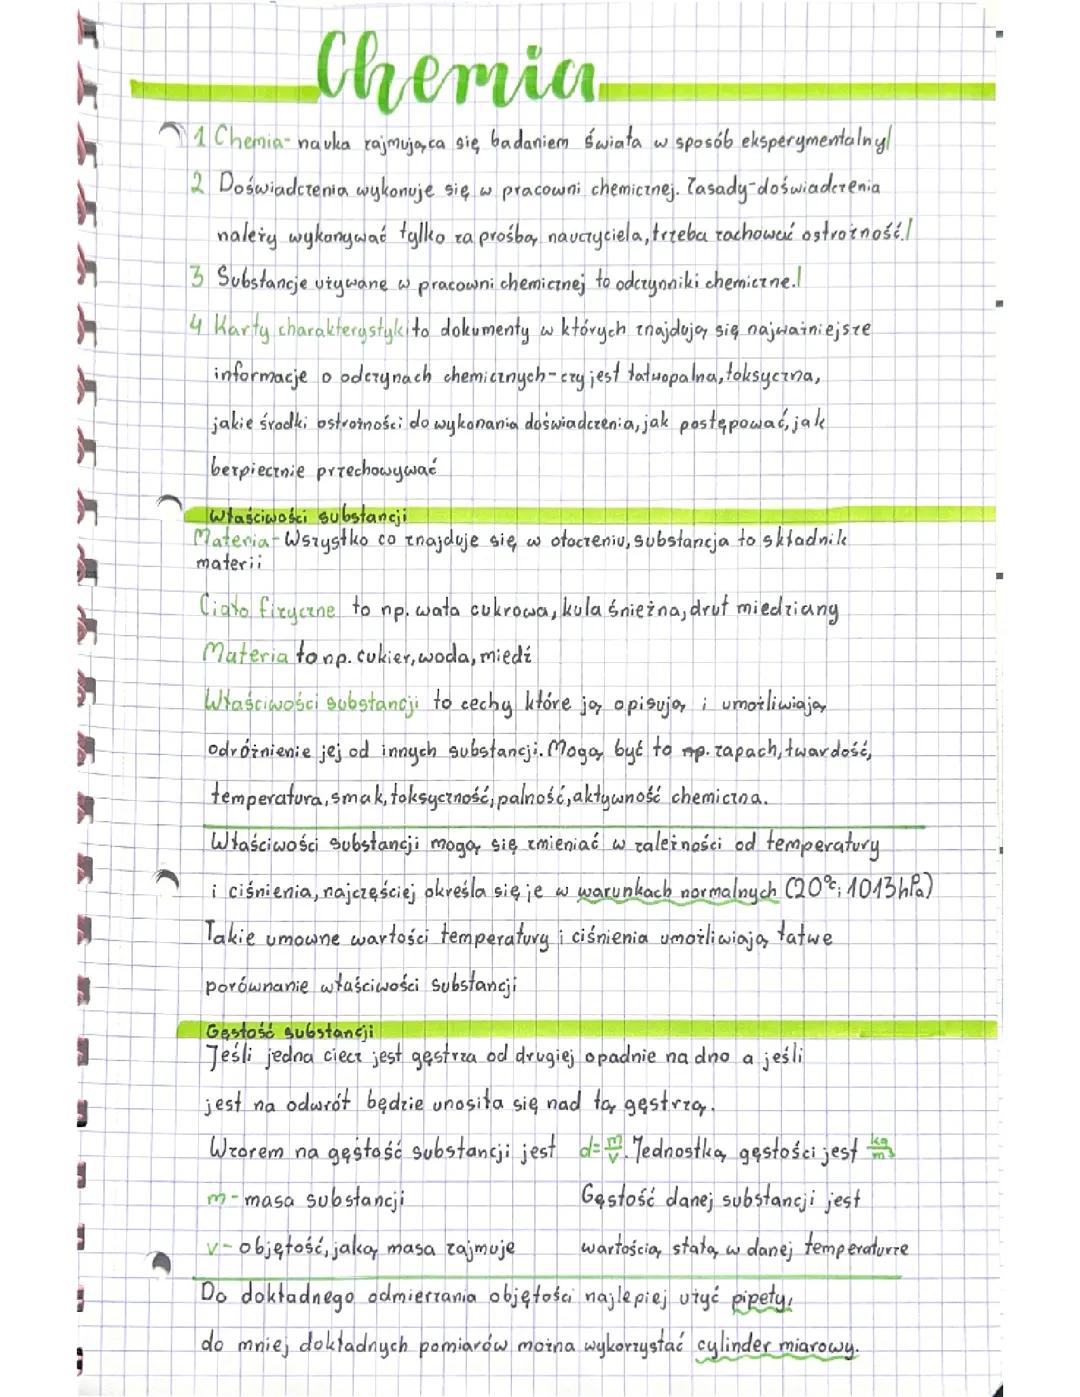 Chemia
1 Chemia- nauka zajmująca się badaniem świata w sposób eksperymentalny/
2 Doświadczenia wykonuje się w pracowni chemicznej. Zasady-doświadczenia
należy wykonywać tylko za prośbą nauczyciela, trzeba zachować ostrożność./
3 Substancje używane w pracowni chemicznej to odczynniki chemiczne./
4 Karty charakterystyki to dokumenty w których znajdują się najważniejsze
informacje o odczynach chemicznych-czy jest łatwopalna, toksyczna,
jakie środki ostrożności do wykonania doświadczenia, jak postępować, jak
bezpiecznie przechowywać
Właściwości substancji
Materia-Wszystko co znajduje się w otoczeniu, substancja to składnik
materii
Ciało fizyczne to np. wata cukrowa, kula śnieżna, drut miedziany
Materia to np. cukier, woda, miedź
Właściwości substancji to cechy które ją opisują i umożliwiają
odróżnienie jej od innych substancji. Mogą być to np. zapach, twardość,
temperatura, smak, toksyczność, palność, aktywność chemiczna.
Właściwości substancji mogą się zmieniać w zależności od temperatury
i ciśnienia, najczęściej określa się je w warunkach normalnych (20°C; 1013hPa)
Takie umowne wartości temperatury i ciśnienia umożliwiają łatwe
porównanie właściwości substancji
Gęstość substancji
Jeśli jedna ciecz jest gęstrza od drugiej opadnie na dno a jeśli
jest na odwrót będzie unosiła się nad tą gęstrzą.
Wzorem na gęstość substancji jest d=m/V. Jednostką gęstości jest kg/m³
m-masa substancji Gęstość danej substancji jest
v- objętość, jaką masa zajmuje wartością stałą w danej temperaturze
Do dokładnego odmierzania objętości najlepiej użyć pipety,
do mniej dokładnych pomiarów można wykorzystać cylinder miarowy.